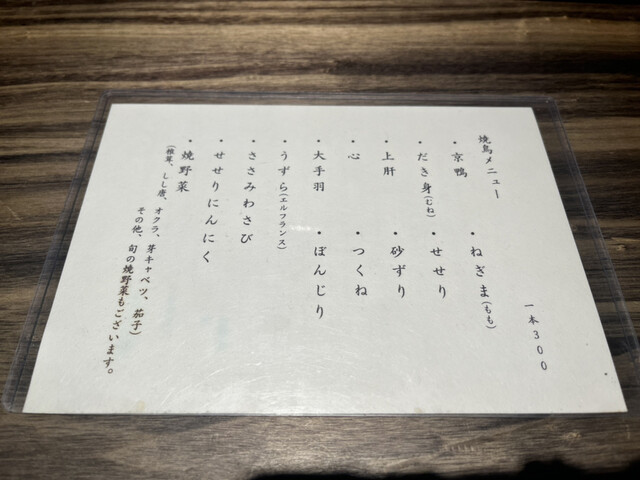 焼鳥メニュー
一本300
・京鴨
・ねぎま(もも)
・だき身(むね)
・せせり
・上肝
・砂ずり
・心
・つくね
・大手羽
・ぼんじり
・うずら(エルフランス)
・ささみわさび
・せせりにんにく
・焼野菜
(椎茸、しし唐、オクラ、芽キャベツ、茄子)
その他、旬の焼野菜もございます。